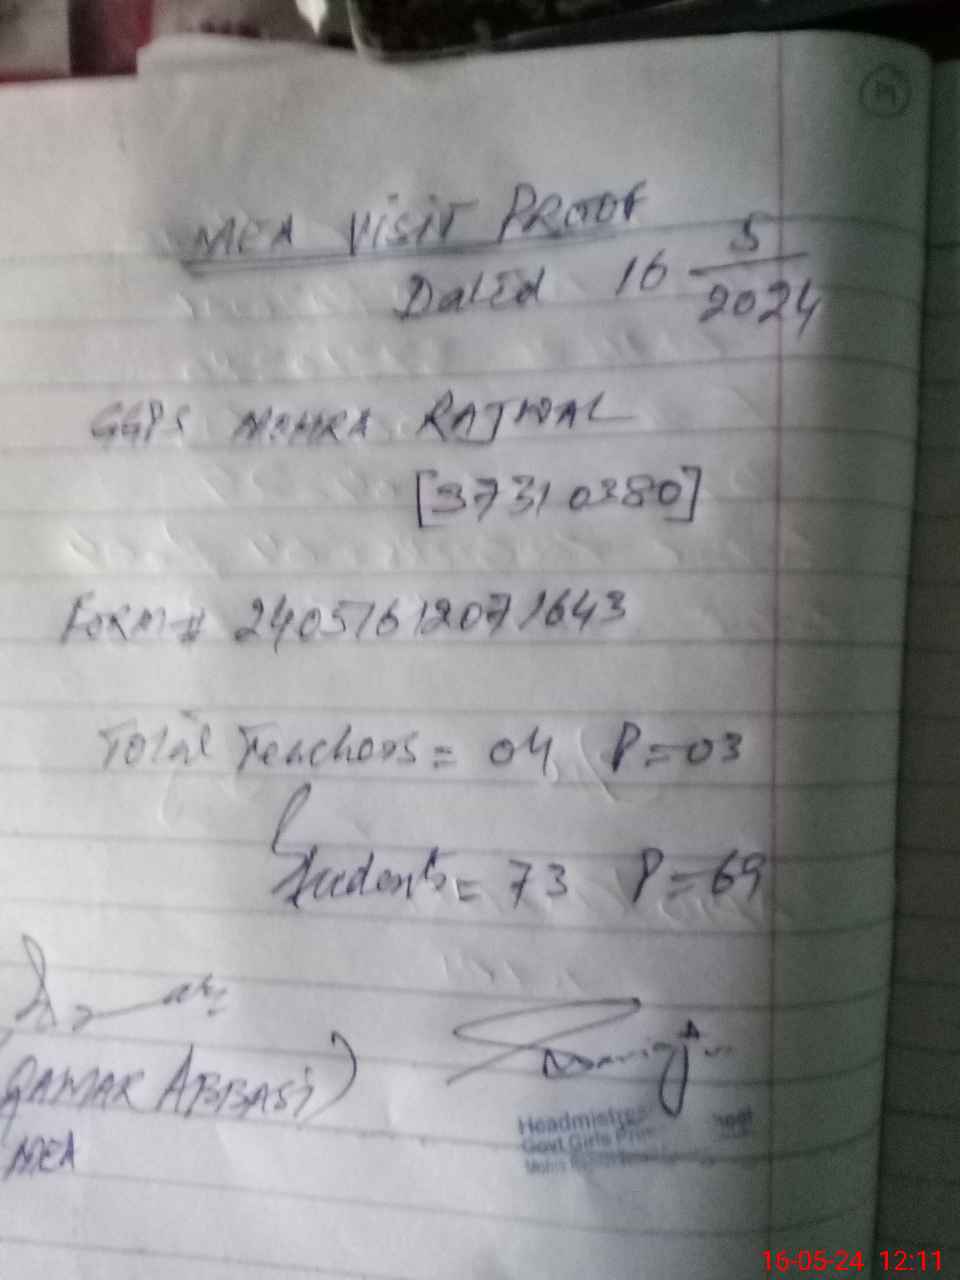 MEA Visit PROOF
Dated 16 5/2024
GGPS MOHRA RAJWAL
[37310380]
Form # 24051612071643
Total Teachers = 04 P=03
Students = 73 P=69
(QAMAR ABBASI)
MEA
Headmistress
Govt Girls
16-05-24 12:11